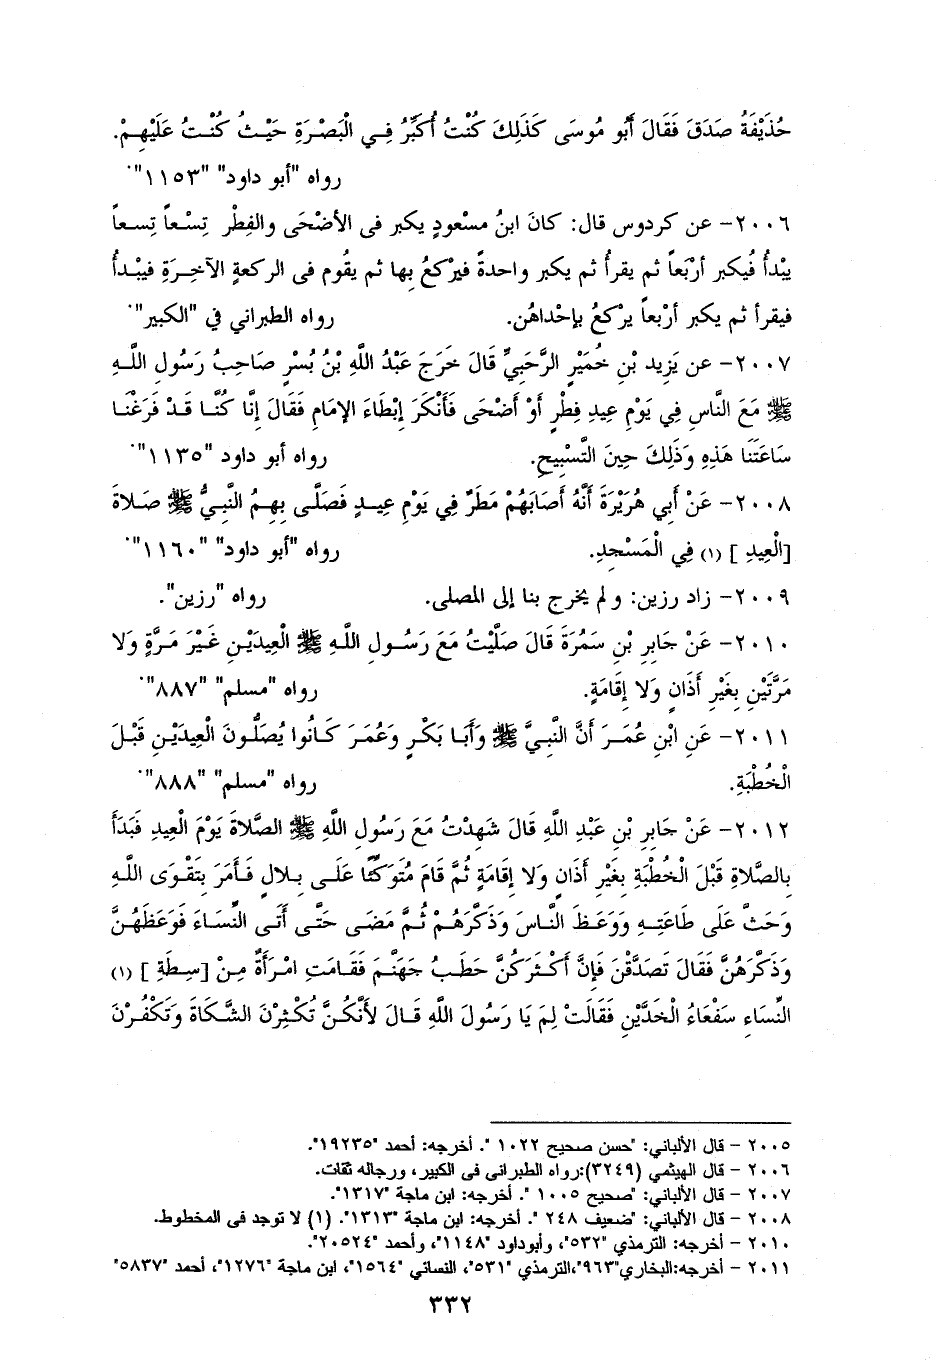 حُذَيْفَةُ صَدَقَ فَقَالَ أَبُو مُوسَى كَذَلِكَ كُنْتُ أُكَبِّرُ فِي الْبَصْرَةِ حَيْثُ كُنْتُ عَلَيْهِمْ.
رواه "أبو داود" "١١٥٣".
٢٠٠٦- عن كردوس قال: كانَ ابنُ مسْعودٍ يكبر فى الأضْحَى والفِطْرِ تِسْعاً تِسعاً
يبْدأُ فُيكبر أرْبَعاً ثم يقرأُ ثم يكبر واحدةً فيرْكعُ بِها ثم يقُوم فى الركعةِ الآخِرَةِ فيبْدأُ
فيقرأ ثم يكبر أرْبعاً يرْكعُ بإحْداهُن. رواه الطبراني في "الكبير".
٢٠٠٧- عن يَزِيد بْنِ خُمَيْرٍ الرَّحَبِيِّ قَالَ خَرَجَ عَبْدُ اللَّهِ بْنُ بُسْرٍ صَاحِبُ رَسُولِ اللَّهِ
ﷺ مَعَ النَّاسِ فِي يَوْمِ عِيدِ فِطْرٍ أَوْ أَضْحَى فَأَنْكَرَ إِبْطَاءَ الإِمَامِ فَقَالَ إِنَّا كُنَّا قَدْ فَرَغْنَا
سَاعَتَنَا هَذِهِ وَذَلِكَ حِينَ التَّسْبِيحِ. رواه أبو داود "١١٣٥".
٢٠٠٨- عَنْ أَبِي هُرَيْرَةَ أَنَّهُ أَصَابَهُمْ مَطَرٌ فِي يَوْمِ عِيدٍ فَصَلَّى بِهِمُ النَّبِيُّ ﷺ صَلاةَ
[الْعِيدِ ] (١) فِي الْمَسْجِدِ. رواه "أبو داود" "١١٦٠".
٢٠٠٩- زاد رزين: ولم يخرج بنا إلى المصلى. رواه "رزين".
٢٠١٠- عَنْ جَابِرِ بْنِ سَمُرَةَ قَالَ صَلَّيْتُ مَعَ رَسُولِ اللَّهِ ﷺ الْعِيدَيْنِ غَيْرَ مَرَّةٍ وَلا
مَرَّتَيْنِ بِغَيْرِ أَذَانٍ وَلا إِقَامَةٍ. رواه "مسلم" "٨٨٧".
٢٠١١- عَنِ ابْنِ عُمَرَ أَنَّ النَّبِيَّ ﷺ وَأَبَا بَكْرٍ وَعُمَرَ كَانُوا يُصَلُّونَ الْعِيدَيْنِ قَبْلَ
الْخُطْبَةِ. رواه "مسلم" "٨٨٨".
٢٠١٢- عَنْ جَابِرِ بْنِ عَبْدِ اللَّهِ قَالَ شَهِدْتُ مَعَ رَسُولِ اللَّهِ ﷺ الصَّلاةَ يَوْمَ الْعِيدِ فَبَدَأَ
بِالصَّلاةِ قَبْلَ الْخُطْبَةِ بِغَيْرِ أَذَانٍ وَلا إِقَامَةٍ ثُمَّ قَامَ مُتَوَكِّئًا عَلَى بِلالٍ فَأَمَرَ بِتَقْوَى اللَّهِ
وَحَثَّ عَلَى طَاعَتِهِ وَوَعَظَ النَّاسَ وَذَكَّرَهُمْ ثُمَّ مَضَى حَتَّى أَتَى النِّسَاءَ فَوَعَظَهُنَّ
وَذَكَّرَهُنَّ فَقَالَ تَصَدَّقْنَ فَإِنَّ أَكْثَرَكُنَّ حَطَبُ جَهَنَّمَ فَقَامَتِ امْرَأَةٌ مِنْ [سِطَةِ ] (١)
النِّسَاءِ سَفْعَاءُ الْخَدَّيْنِ فَقَالَتْ لِمَ يَا رَسُولَ اللَّهِ قَالَ لأَنَّكُنَّ تُكْثِرْنَ الشَّكَاةَ وَتَكْفُرْنَ
٢٠٠٥ - قال الألباني: "حسن صحيح ١٠٢٢ ". أخرجه: أحمد "١٩٢٣٥".
٢٠٠٦ - قال الهيثمي (٣٢٤٩):رواه الطبرانى فى الكبير، ورجاله ثقات.
٢٠٠٧ - قال الألباني: "صحيح ١٠٠٥ ". أخرجه: ابن ماجة "١٣١٧".
٢٠٠٨ - قال الألباني: "ضعيف ٢٤٨ ". أخرجه: ابن ماجة "١٣١٣". (١) لا توجد فى المخطوط.
٢٠١٠ - أخرجه: الترمذي "٥٣٢"، وأبوداود "١١٤٨"، وأحمد "٢٠٥٢٤".
٢٠١١ - أخرجه:البخاري"٩٦٣"،الترمذي "٥٣١"، النسائي "١٥٦٤"، ابن ماجة "١٢٧٦"، أحمد "٥٨٣٧"
٣٣٢